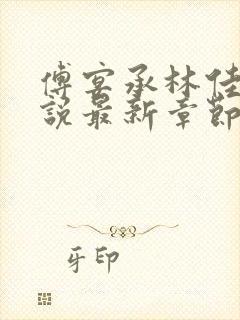 傅宴承林佳
說最新章節
牙印